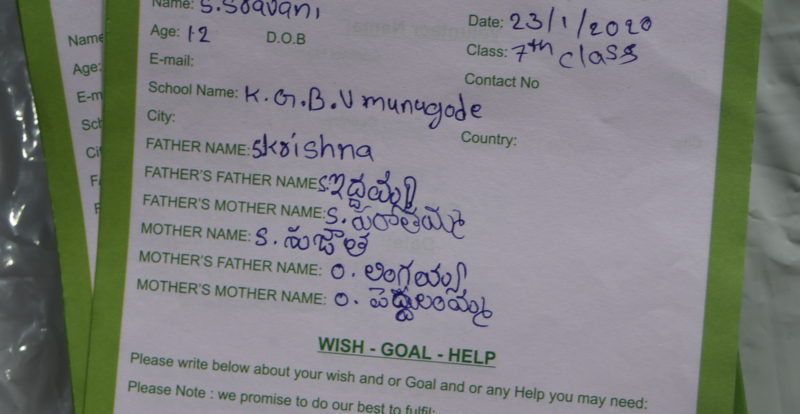 Name: S. Sravani
Date: 23/1/2020
Age: 12 D.O.B
Class: 7th class
E-mail:
Contact No
School Name: K.G.B.V munugode
City:
Country:
FATHER NAME: S krishna
FATHER'S FATHER NAME: S.
FATHER'S MOTHER NAME: S.
MOTHER NAME: S. సుజాత
MOTHER'S FATHER NAME: O. లింగయ్య
MOTHER'S MOTHER NAME: O.
WISH - GOAL - HELP
Please write below about your wish and or Goal and or any Help you may need:
Please Note : we promise to do our best to fulfil:
Name
Age:
E-m
Sch
Ci
F
F